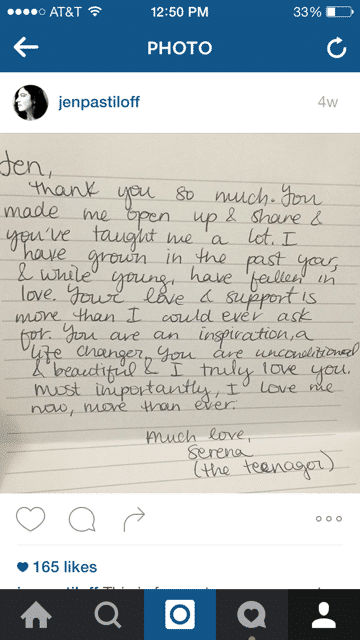 AT&T 12:50 PM 33%
PHOTO
jenpastiloff 4w
Jen,
Thank you so much. You
made me open up & share &
you've taught me a lot. I
have grown in the past year,
& while young, have fallen in
love. Your love & support is
more than I could ever ask
for. You are an inspiration, a
life changer. You are unconditional
& beautiful & I truly love you.
Most importantly, I love me
now, more than ever.
Much love,
Serena
(the teenager)
165 likes